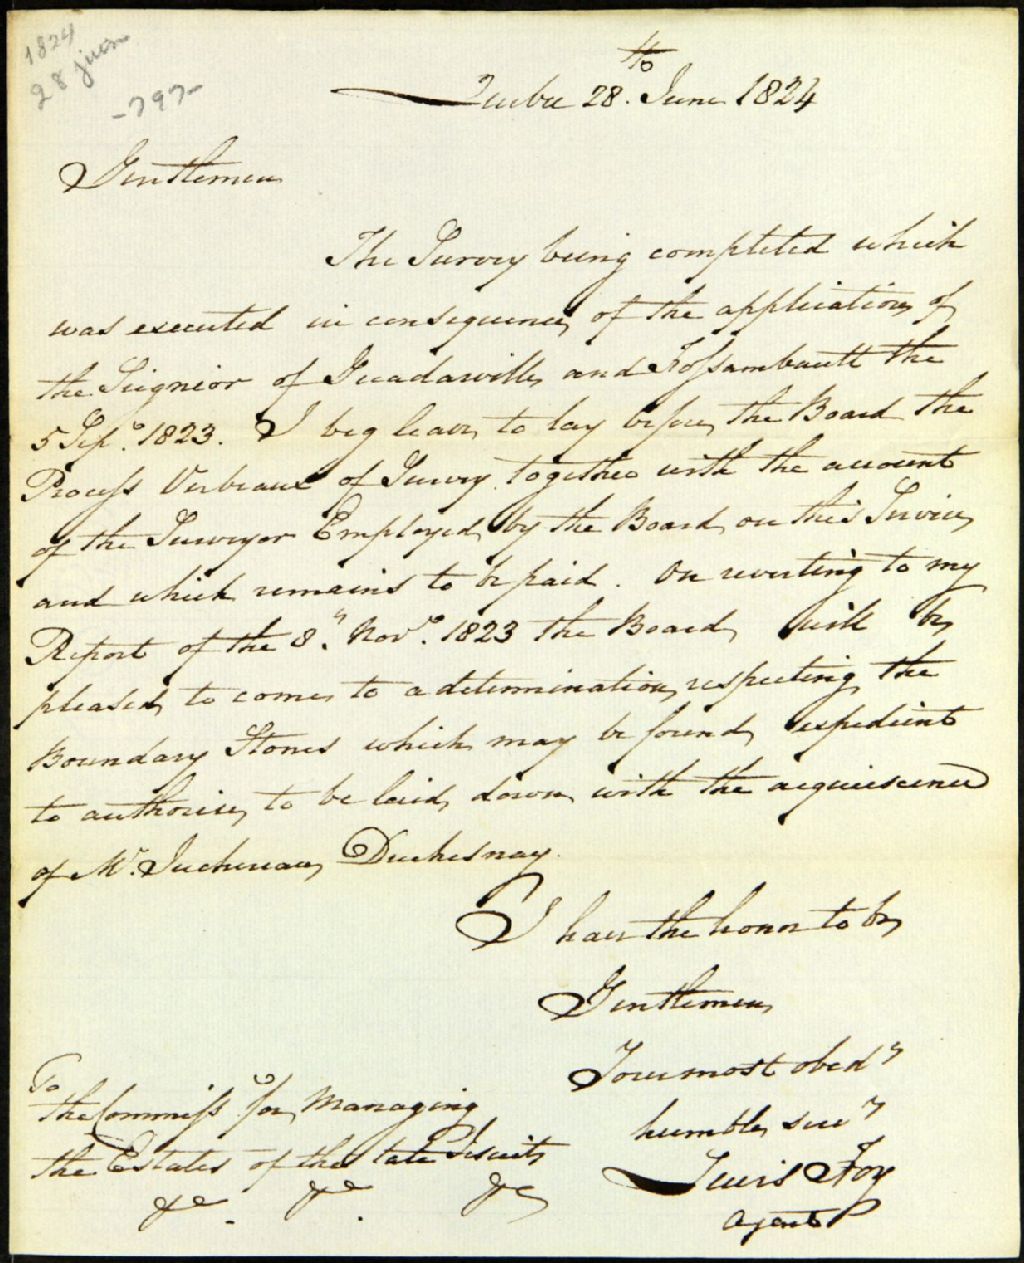 1824
28 juin
-797-
Quebec 28th June 1824
Gentlemen
The Survey being completed which
was executed in consequence of the application of
the Seignior of Guadarville and Fossambault the
5 Sepr. 1823. I beg leave to lay before the Board the
Process Verbeaux of Survey together with the account
of the Surveyor Employed by the Board on this Service
and which remains to be paid. On reverting to my
Report of the 8th Novr. 1823 the Board will be
pleased to come to a determination respecting the
Boundary Stones which may be found expedient
to authorise to be laid down with the acquiescence
of Mr. Juchereau Duchesnay
I have the honor to be
Gentlemen
Your most obedt
humble servt
Lewis Foy
Agent
To
the Commissrs for Managing
the Estates of the late Jesuits
&c. &c. &c